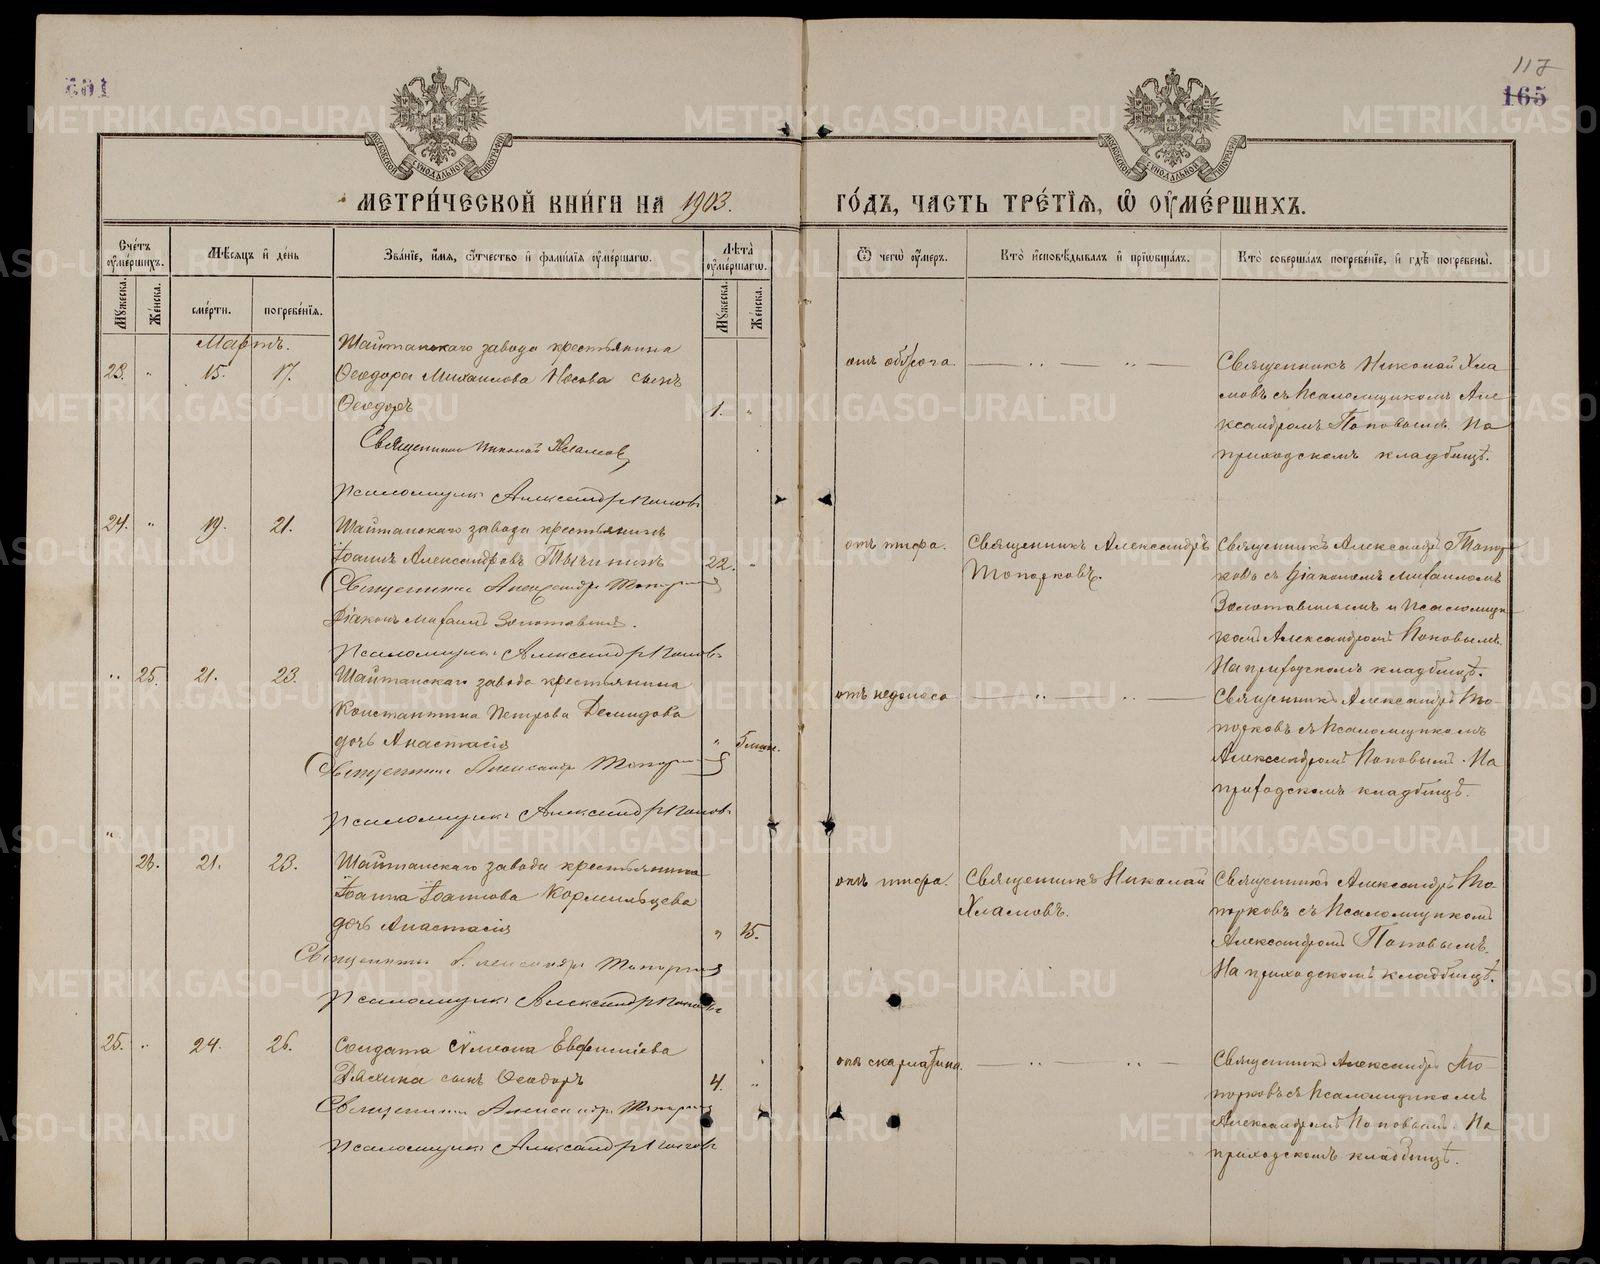 117
165
МЕТРИ́ЧЕСКОЙ КНИ́ГИ НА 1903.
ГО́ДЪ, ЧАСТЬ ТРЕ́ТІЯ, Ѡ ОУМЕ́РШИХЪ.
Счётъ оумершихъ.
Мѣсяцъ и день
Званіе, имя, отчество и фамилія оумершагѡ.
Лѣта оумершагѡ.
Ѿ чегѡ оумеръ.
Кто исповѣдывалъ и пріѡбщалъ.
Кто совершалъ погребеніе, и гдѣ погребены.
Мужеска.
Женска.
смерти.
погребенія.
Мужеска.
Женска.
Мартъ.
23. " 15. 17.
Шайтанскаго завода крестьянина
Ѳеодора Михаилова Носова сынъ
Ѳеодоръ
1. "
Священникъ Николай Хламовъ
Псаломщикъ Александръ Поповъ
Священникъ Николай Хла
мовъ съ псаломщикомъ Але
ксандромъ Поповымъ. На
приходскомъ кладбищѣ.
24. " 19. 21.
Шайтанскаго завода крестьянинъ
Іоаннъ Александровъ
22. "
Священникъ Александръ Топорковъ
Діаконъ Михаилъ
Псаломщикъ Александръ Поповъ
отъ тифа.
Священникъ Александръ
Топорковъ.
Священникъ Александръ Топор
ковъ съ діакономъ Михаиломъ
и псаломщи
комъ Александромъ Поповымъ.
На приходскомъ кладбищѣ.
" 25. 21. 23.
Шайтанскаго завода крестьянина
Константина Петрова Демидова
дочь Анастасія
" 5 мин.
Священникъ Александръ Топорковъ
Псаломщикъ Александръ Поповъ
отъ недоноса
Священникъ Александръ То
порковъ съ псаломщикомъ
Александромъ Поповымъ. На
приходскомъ кладбищѣ.
" 26. 21. 23.
Шайтанскаго завода крестьянина
Іоанна Іоаннова Кормильцева
дочь Анастасія
" 15.
Священникъ Александръ Топорковъ
Псаломщикъ Александръ Поповъ
отъ тифа.
Священникъ Николай
Хламовъ.
Священникъ Александръ То
порковъ съ псаломщикомъ
Александромъ Поповымъ.
На приходскомъ кладбищѣ.
25. " 24. 26.
Солдата Сѵмеона Евфиміева
сынъ Ѳеодоръ
4. "
Священникъ Александръ Топорковъ
Псаломщикъ Александръ Поповъ
отъ скарлатина.
Священникъ Александръ То
порковъ съ псаломщикомъ
Александромъ Поповымъ. На
приходскомъ кладбищѣ.
METRIKI.GASO-URAL.RU